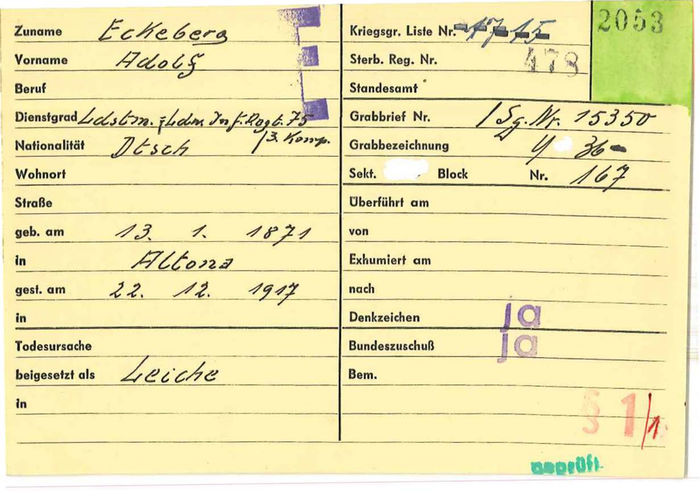 Zuname Eckeberg
Vorname Adolf
Beruf
Dienstgrad Ldstm. Ldw. Inf. Regt. 75
/3. Komp.
Nationalität Dtsch
Wohnort
Straße
geb. am 13. 1. 1871
in Altona
gest. am 22. 12. 1917
in
Todesursache
beigesetzt als Leiche
in
2053
Kriegsgr. Liste Nr. 1715
Sterb. Reg. Nr. 478
Standesamt
Grabbrief Nr. / Sg. Nr. 15350
Grabbezeichnung Y 36
Sekt. Block Nr. 167
Überführt am
von
Exhumiert am
nach
Denkzeichen ja
Bundeszuschuß ja
Bem.
§ 1/1
geprüft